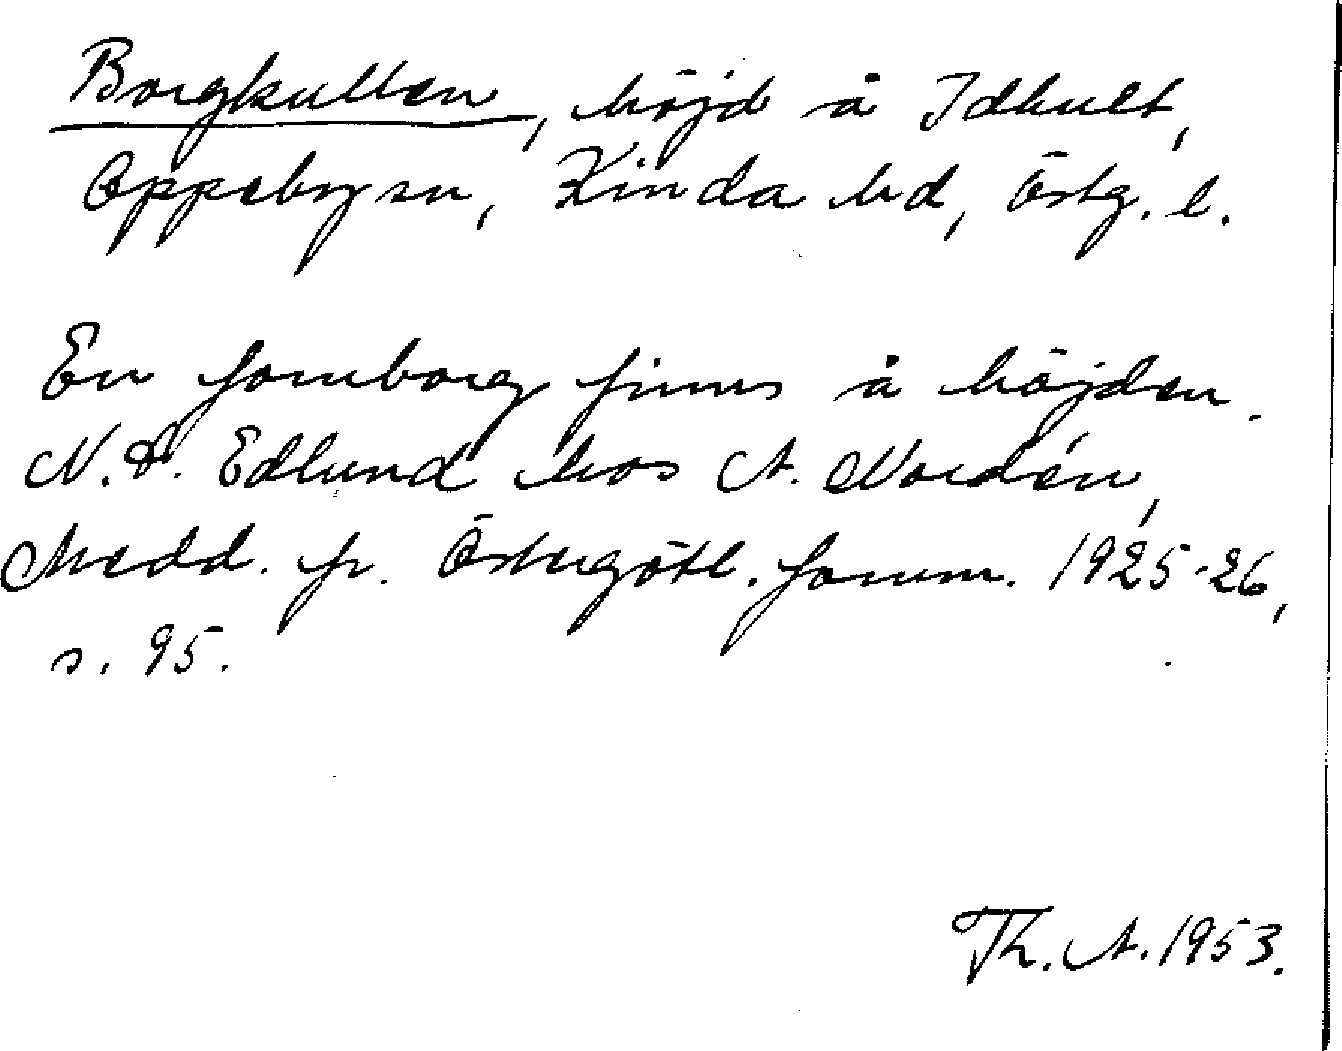 Borgkullen, höjd å Idhult,
Oppeby sn, Kinda hd, Östg. l.
En fornborg finns å höjden.
N. D. Edlund hos A. Nordén,
Medd. fr. Östergötl. fornm. 1925-26,
s. 95.
Th. A. 1953.